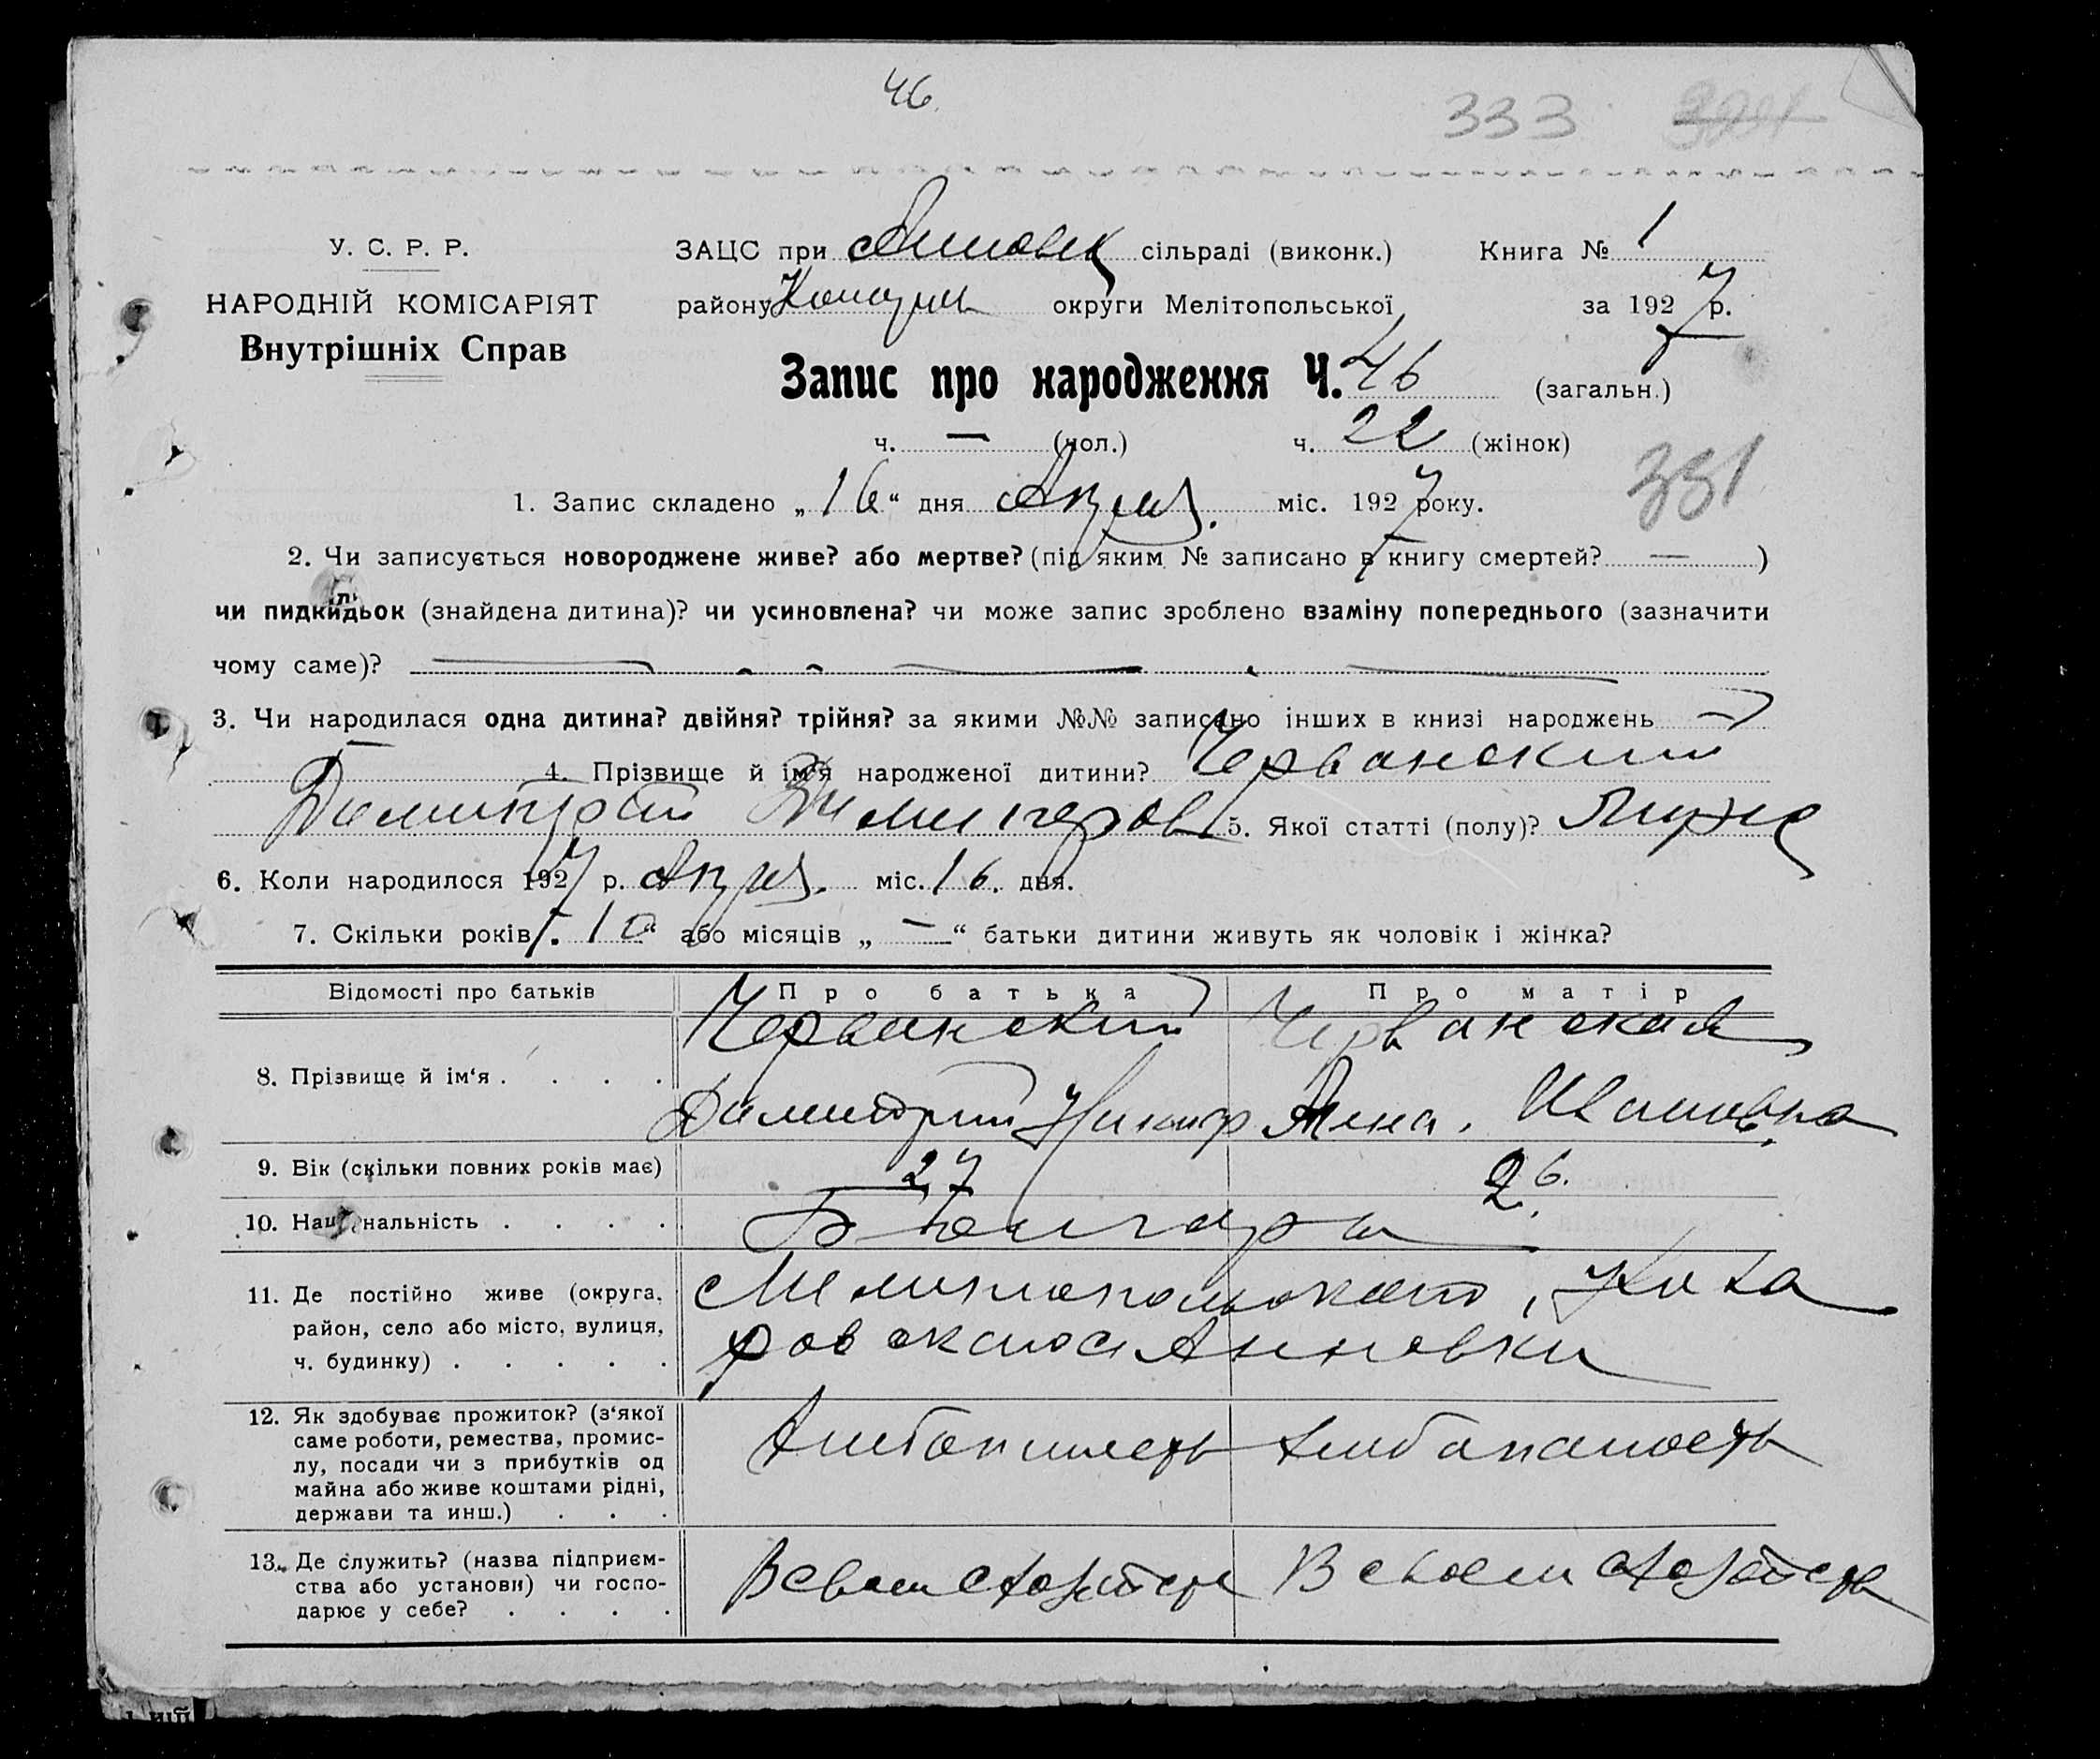 46.
333
У. С. Р. Р.
ЗАЦС при Анновск сільраді (виконк.) Книга № 1
НАРОДНІЙ КОМІСАРІЯТ
району округи Мелітопольської за 1927 р.
Внутрішніх Справ
Запис про народження Ч. 46 (загальн.)
ч. — (чол.) ч. 22 (жінок)
331
1. Запис складено „16“ дня Апрел. міс. 1927 року.
2. Чи записується новороджене живе? або мертве? (під яким № записано в книгу смертей? — )
чи пидкидьок (знайдена дитина)? чи усиновлена? чи може запис зроблено взаміну попереднього (зазначити
чому саме)?
3. Чи народилася одна дитина? двійня? трійня? за якими №№ записано інших в книзі народжень —
4. Прізвище й ім'я народженої дитини? Черванский
Димитрий Димитров 5. Якої статті (полу)? Муже
6. Коли народилося 1927 р. Апрел. міс. 16. дня.
7. Скільки років „10“ або місяців „—“ батьки дитини живуть як чоловік і жінка?
Відомості про батьків Про батька Про матір
Червански Черванская
8. Прізвище й ім‘я . . . .
Димитрий Никиф Анна. Ивановна
9. Вік (скільки повних років має) 27 26.
10. Національність . . . . Болгары
11. Де постійно живе (округа, Мелитопольского, Киза
район, село або місто, вулиця, ровского Анновки
ч. будинку) . . . . .
12. Як здобуває прожиток? (з‘якої
саме роботи, ремества, промис-
лу, посади чи з прибутків од
майна або живе коштами рідні,
держави та инш.) . . .
Хлебопашец Хлебопашец
13. Де служить? (назва підприєм-
ства або установи) чи госпо-
дарює у себе? . . . .
В своем хозяйстве В своем хозяйстве